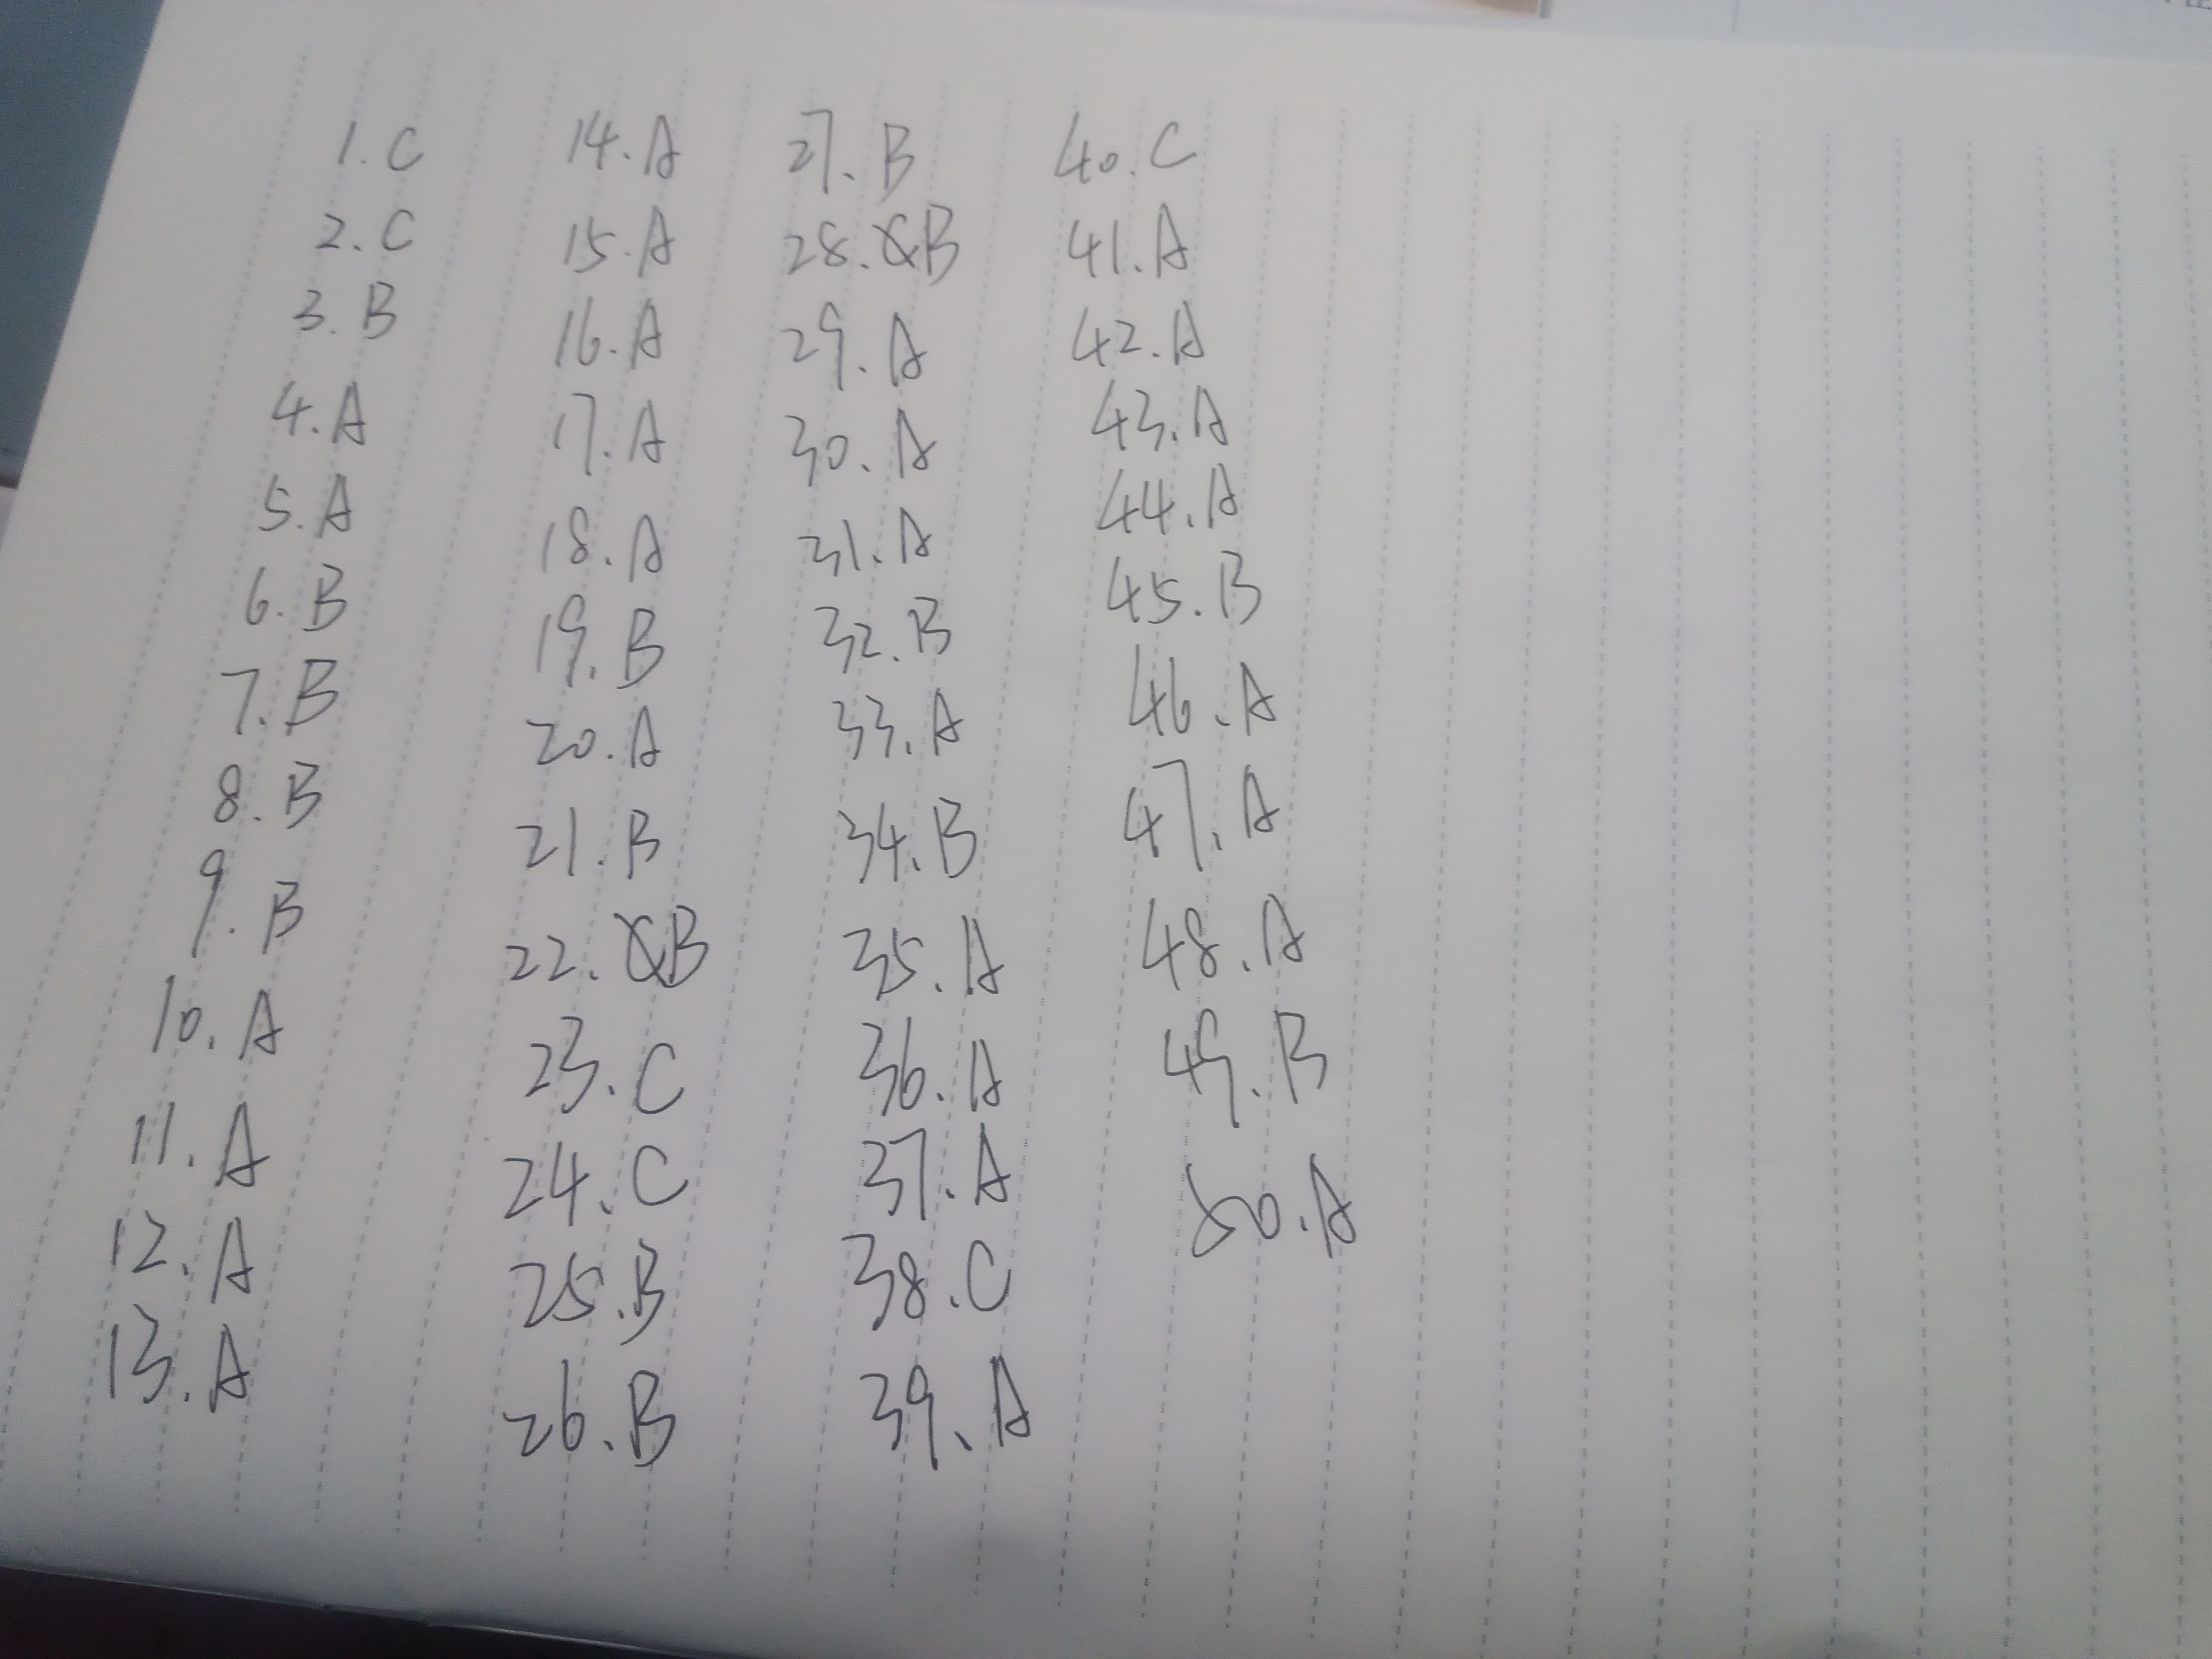 1. C
2. C
3. B
4. A
5. A
6. B
7. B
8. B
9. B
10. A
11. A
12. A
13. A
14. A
15. A
16. A
17. A
18. A
19. B
20. A
21. B
22. B
23. C
24. C
25. B
26. B
27. B
28. B
29. A
30. A
31. A
32. B
33. A
34. B
35. A
36. A
37. A
38. C
39. A
40. C
41. A
42. A
43. A
44. A
45. B
46. A
47. A
48. A
49. B
50. A